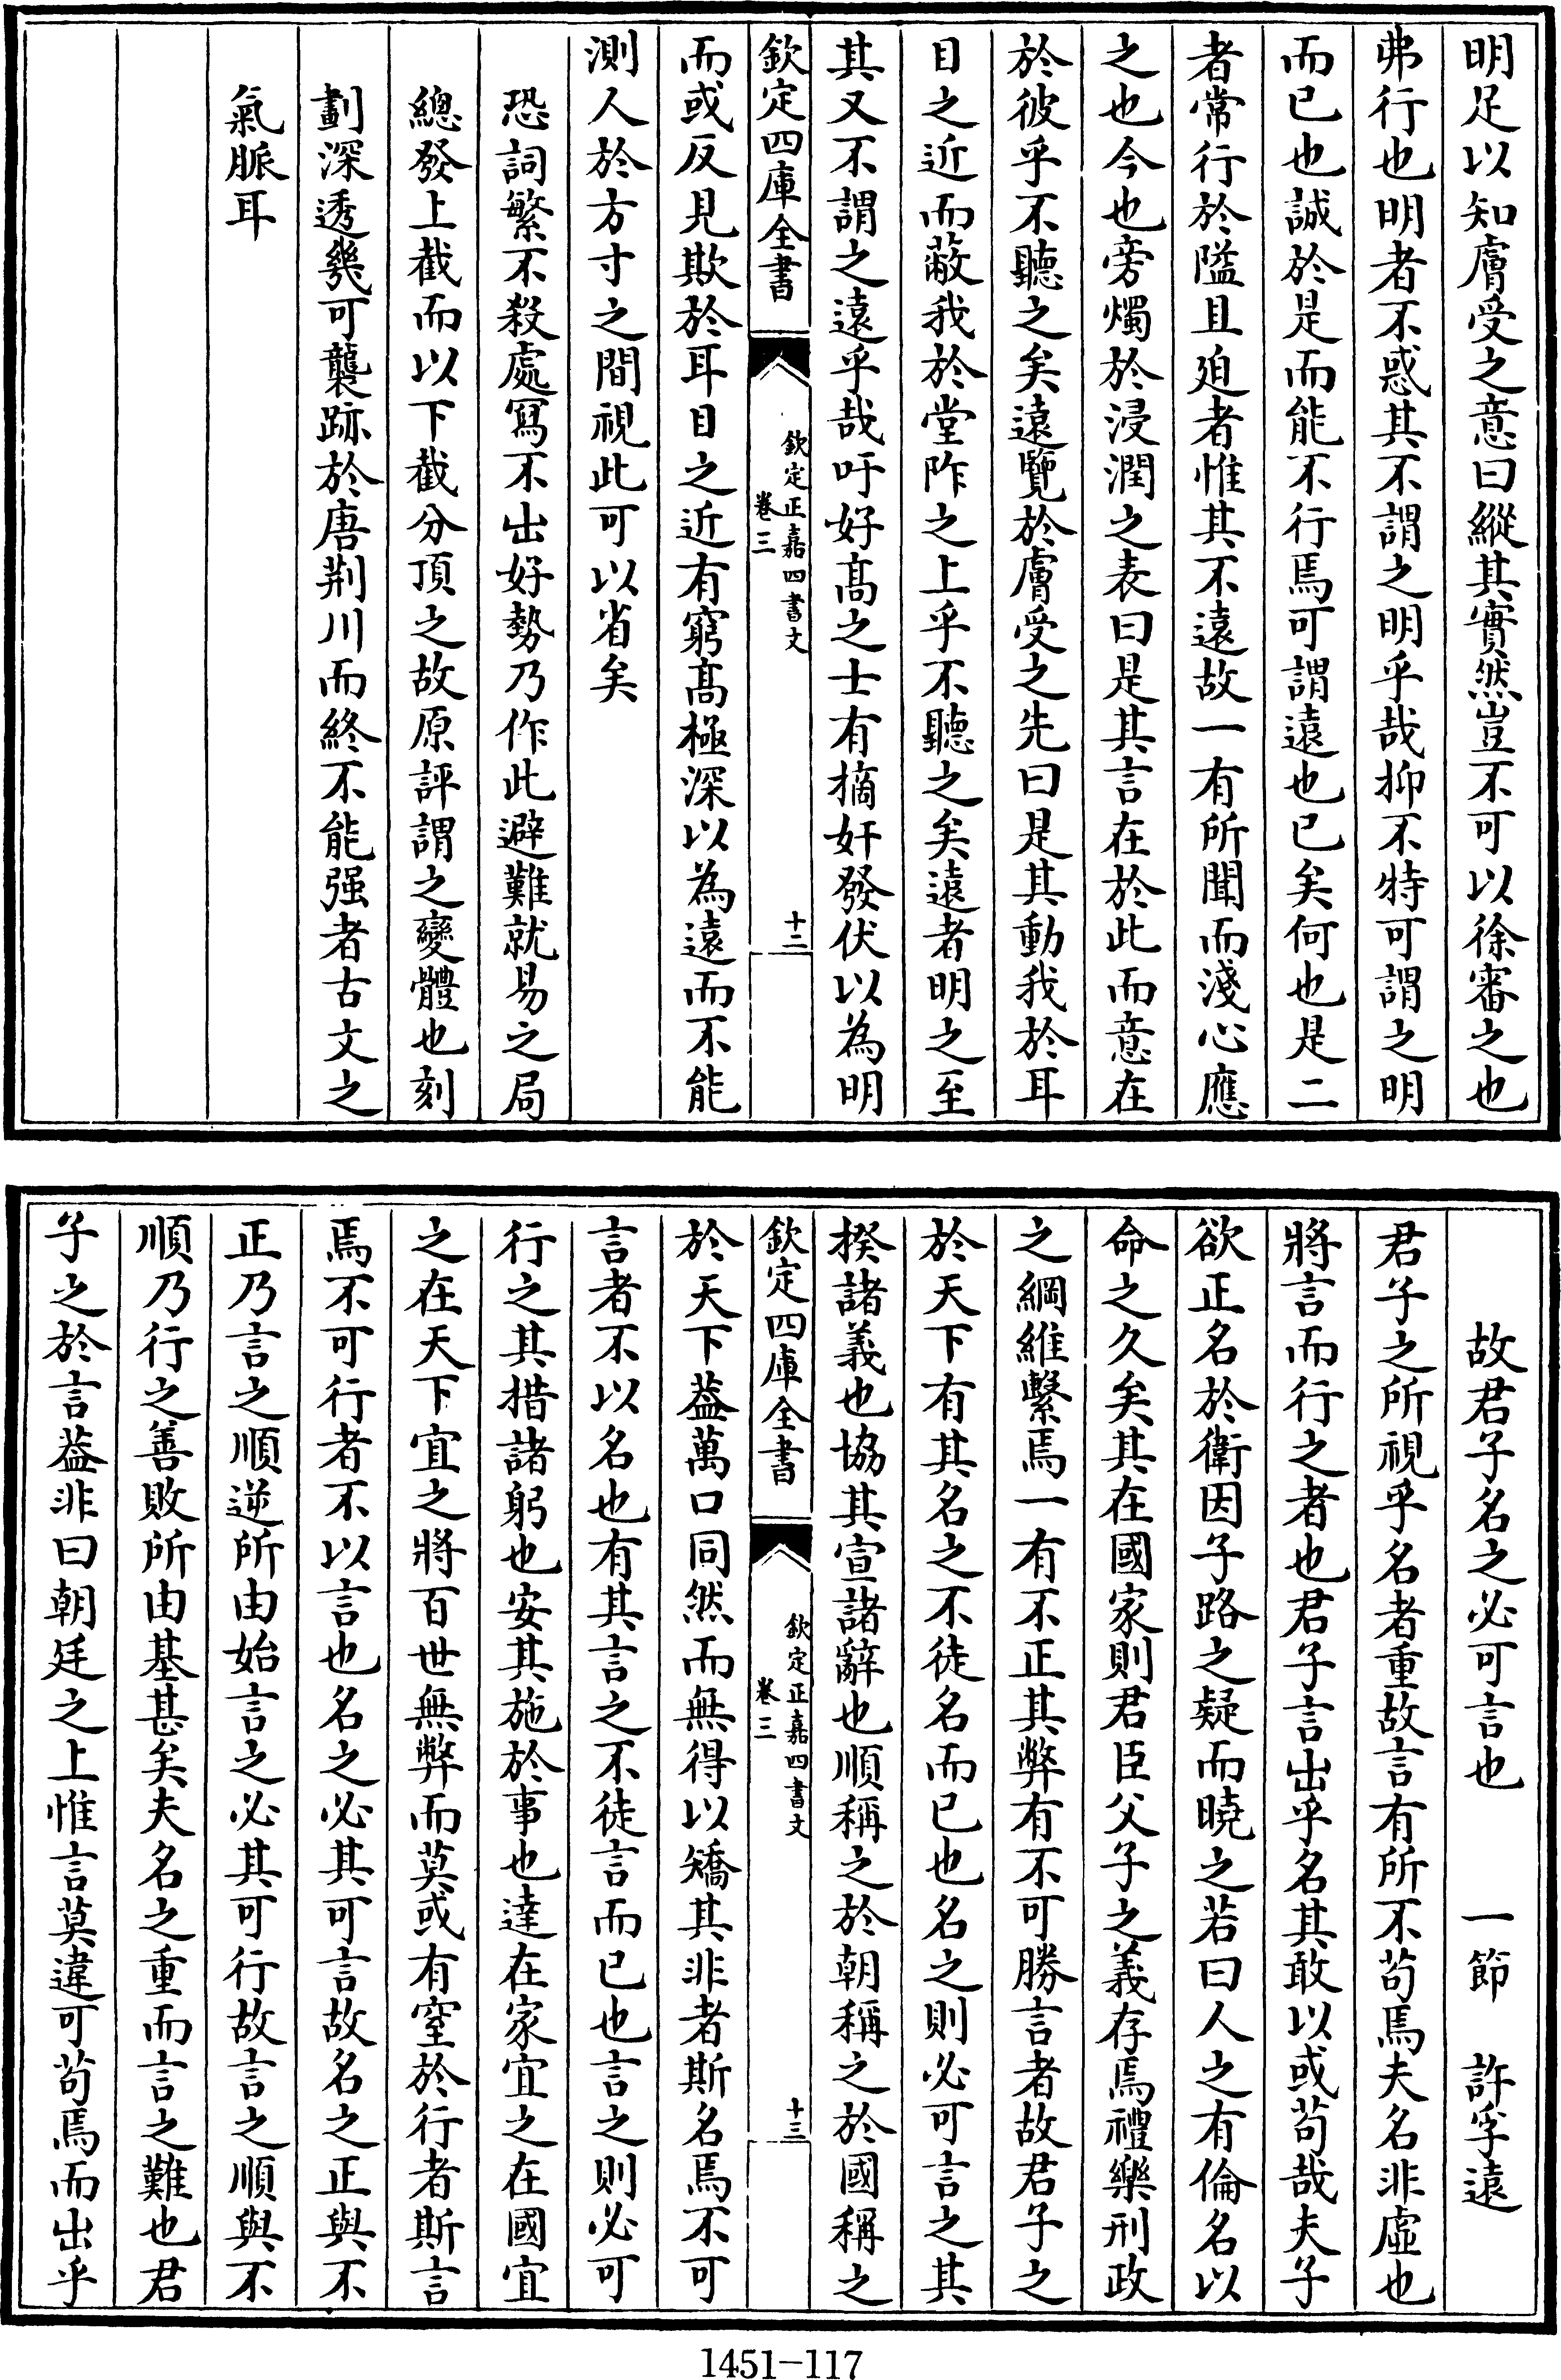 明足以知膚受之意曰縱其實然豈不可以徐審之也
弗行也明者不惑其不謂之明乎哉抑不特可謂之明
而已也誠於是而能不行焉可謂遠也已矣何也是二
者常行於隘且廹者惟其不遠故一有所聞而淺心應
之也今也旁燭於浸潤之表曰是其言在於此而意在
於彼乎不聽之矣遠覽於膚受之先曰是其動我於耳
目之近而蔽我於堂阼之上乎不聽之矣遠者明之至
其又不謂之遠乎哉吁好髙之士有摘奸發伏以為明
欽定四庫全書
欽定正嘉四書文
卷三
十二
而或反見欺於耳目之近有窮髙極深以為遠而不能
測人於方寸之間視此可以省矣
恐詞繁不殺處寫不出好勢乃作此避難就易之局
總發上截而以下截分頂之故原評謂之變體也刻
劃深透幾可襲跡於唐荆川而終不能强者古文之
氣脈耳
故君子名之必可言也 一節 許孚遠
君子之所視乎名者重故言有所不茍焉夫名非虚也
將言而行之者也君子言出乎名其敢以或茍哉夫子
欲正名於衛因子路之疑而曉之若曰人之有倫名以
命之久矣其在國家則君臣父子之義存焉禮樂刑政
之綱維繫焉一有不正其弊有不可勝言者故君子之
於天下有其名之不徒名而已也名之則必可言之其
揆諸義也協其宣諸辭也順稱之於朝稱之於國稱之
欽定四庫全書
欽定正嘉四書文
卷三
十三
於天下葢萬口同然而無得以矯其非者斯名焉不可
言者不以名也有其言之不徒言而已也言之則必可
行之其措諸躬也安其施於事也達在家宜之在國宜
之在天下宜之將百世無弊而莫或有窒於行者斯言
焉不可行者不以言也名之必其可言故名之正與不
正乃言之順逆所由始言之必其可行故言之順與不
順乃行之善敗所由基甚矣夫名之重而言之難也君
子之於言葢非曰朝廷之上惟言莫違可茍焉而出乎
1451-117